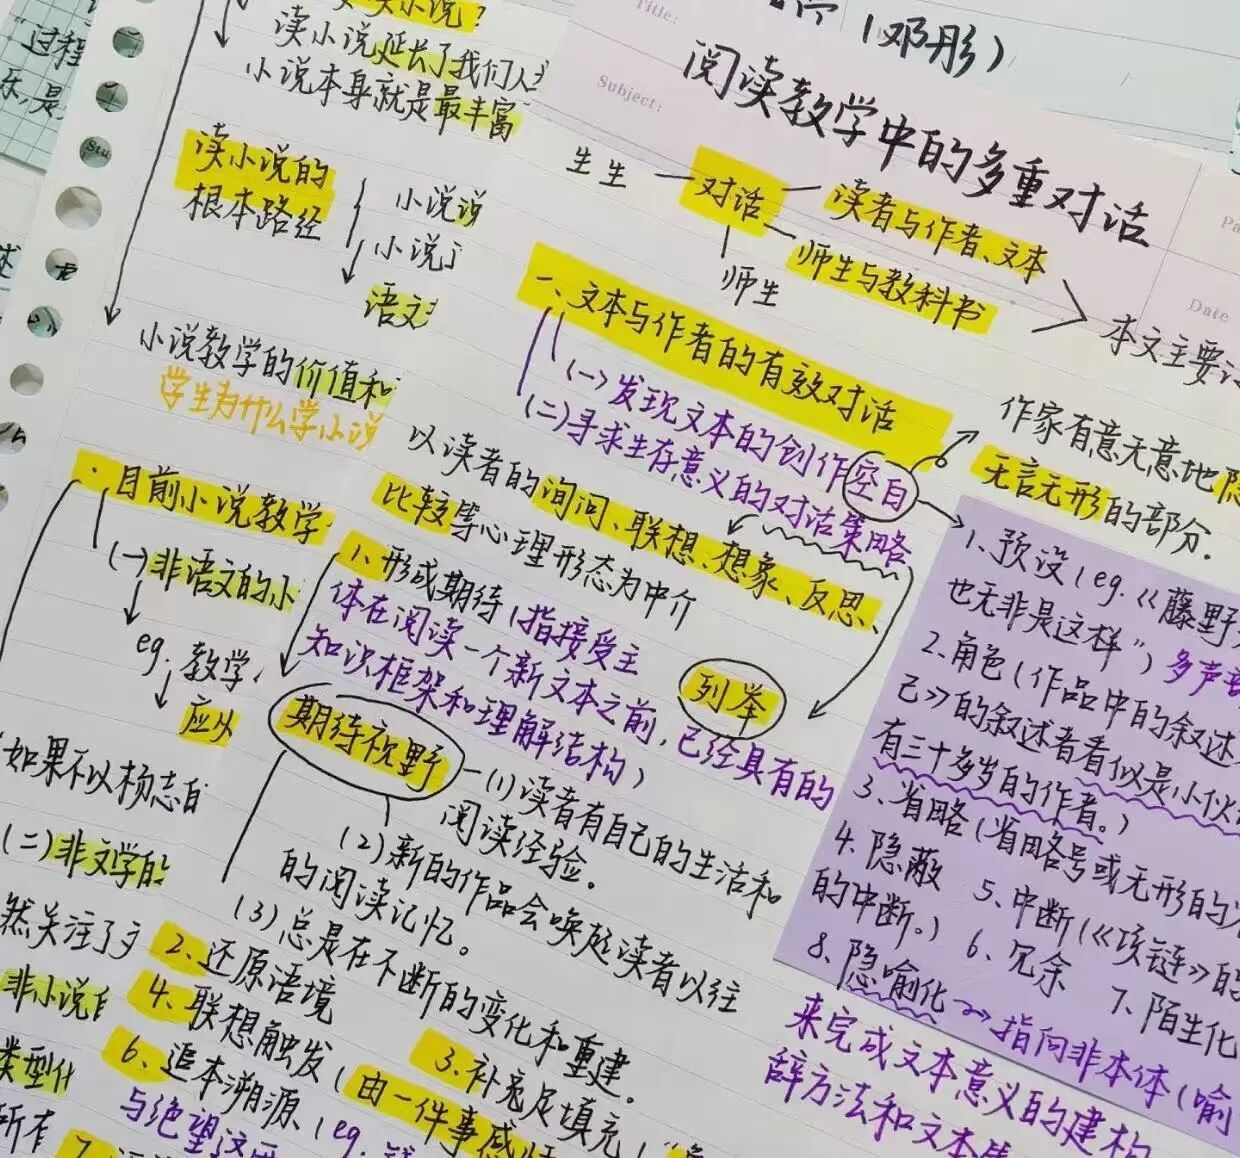 过程
乐,是
读小说延长了我们人
小说本身就是最丰富
读小说的
根本路径
小说说
小说
语文
小说教学的价值和
学生为什么学小说
目前小说教学
(一)非语文的小
eg.教学
应从
如果不以杨志自
(二)非文学的
然关注了文
非小说
类型化
所有
Title:
(邓彤)
Subject:
阅读教学中的多重对话
Date
生生
对话
读者与作者、文本
师生与教科书
师生
本文主要
一、文本与作者的有效对话
(一)发现文本的创作空白
(二)寻求生存意义的对话策略
作家有意无意地隐
无言无形的部分.
以读者的询问、联想、想象、反思、
比较等心理形态为中介
列举
1、形成期待(指接受主
体在阅读一个新文本之前,已经具有的
知识框架和理解结构)
期待视野
(1)读者有自己的生活和
阅读经验。
(2)新的作品会唤起读者以往
的阅读记忆。
(3)总是在不断的变化和重建。
2、还原语境
3、补充足填充(
4、联想触发(由一件事感
6、追本溯源(eg.
与绝望
7
1、预设(eg.《藤野
也无非是这样”)多声
2、角色(作品中的叙述
己》的叙述者看似是小伙
有三十多岁的作者。)
3、省略(省略号或无形的
4、隐蔽 5、中断(《项链》的
的中断。) 6、冗余 7、陌生化
8、隐喻化 指向非本体(喻
来完成文本意义的建构
辞方法和文本